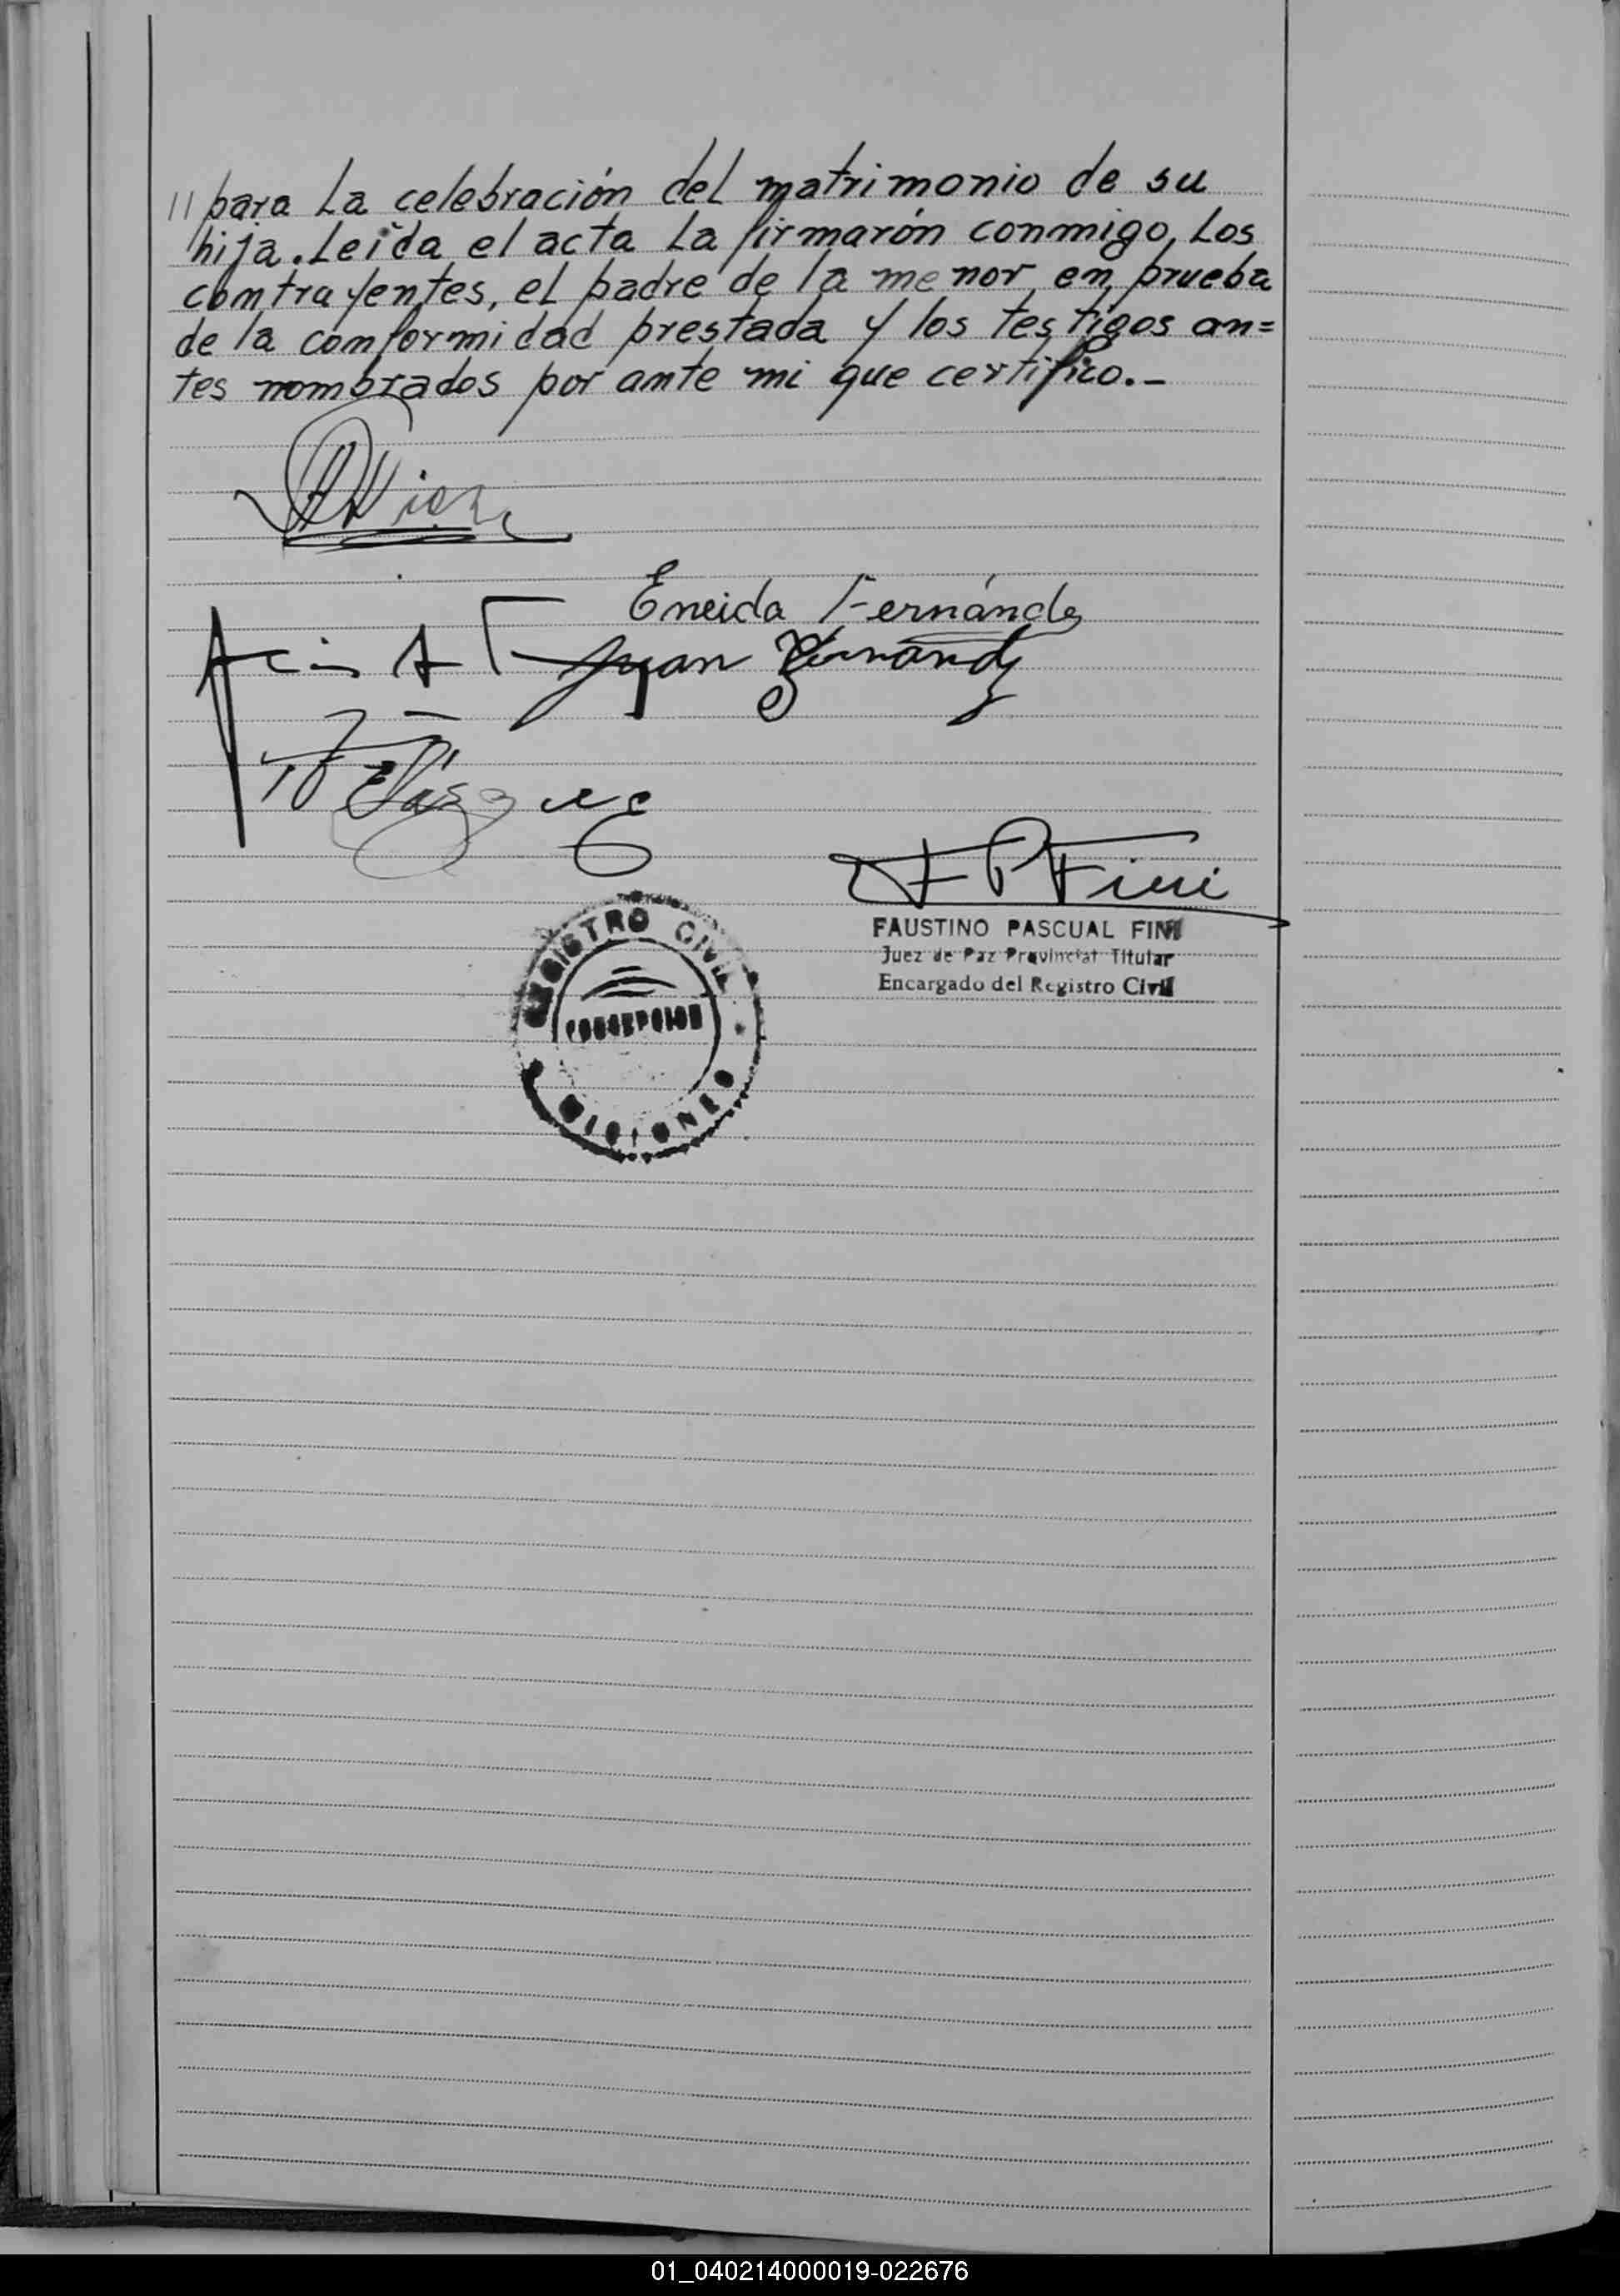 // para La celebración del matrimonio de su
hija. Leída el acta La firmarón conmigo, Los
contrayentes, el padre de la menor, en prueba
de la conformidad prestada y los testigos an=
tes nombrados por ante mi que certifico.-
Eneida Fernández
Juan Fernandz
F P Fini
FAUSTINO PASCUAL FINI
Juez de Paz Provincial Titular
Encargado del Registro Civil
REGISTRO CIVIL
CONCEPCION
MISIONES
01_040214000019-022676